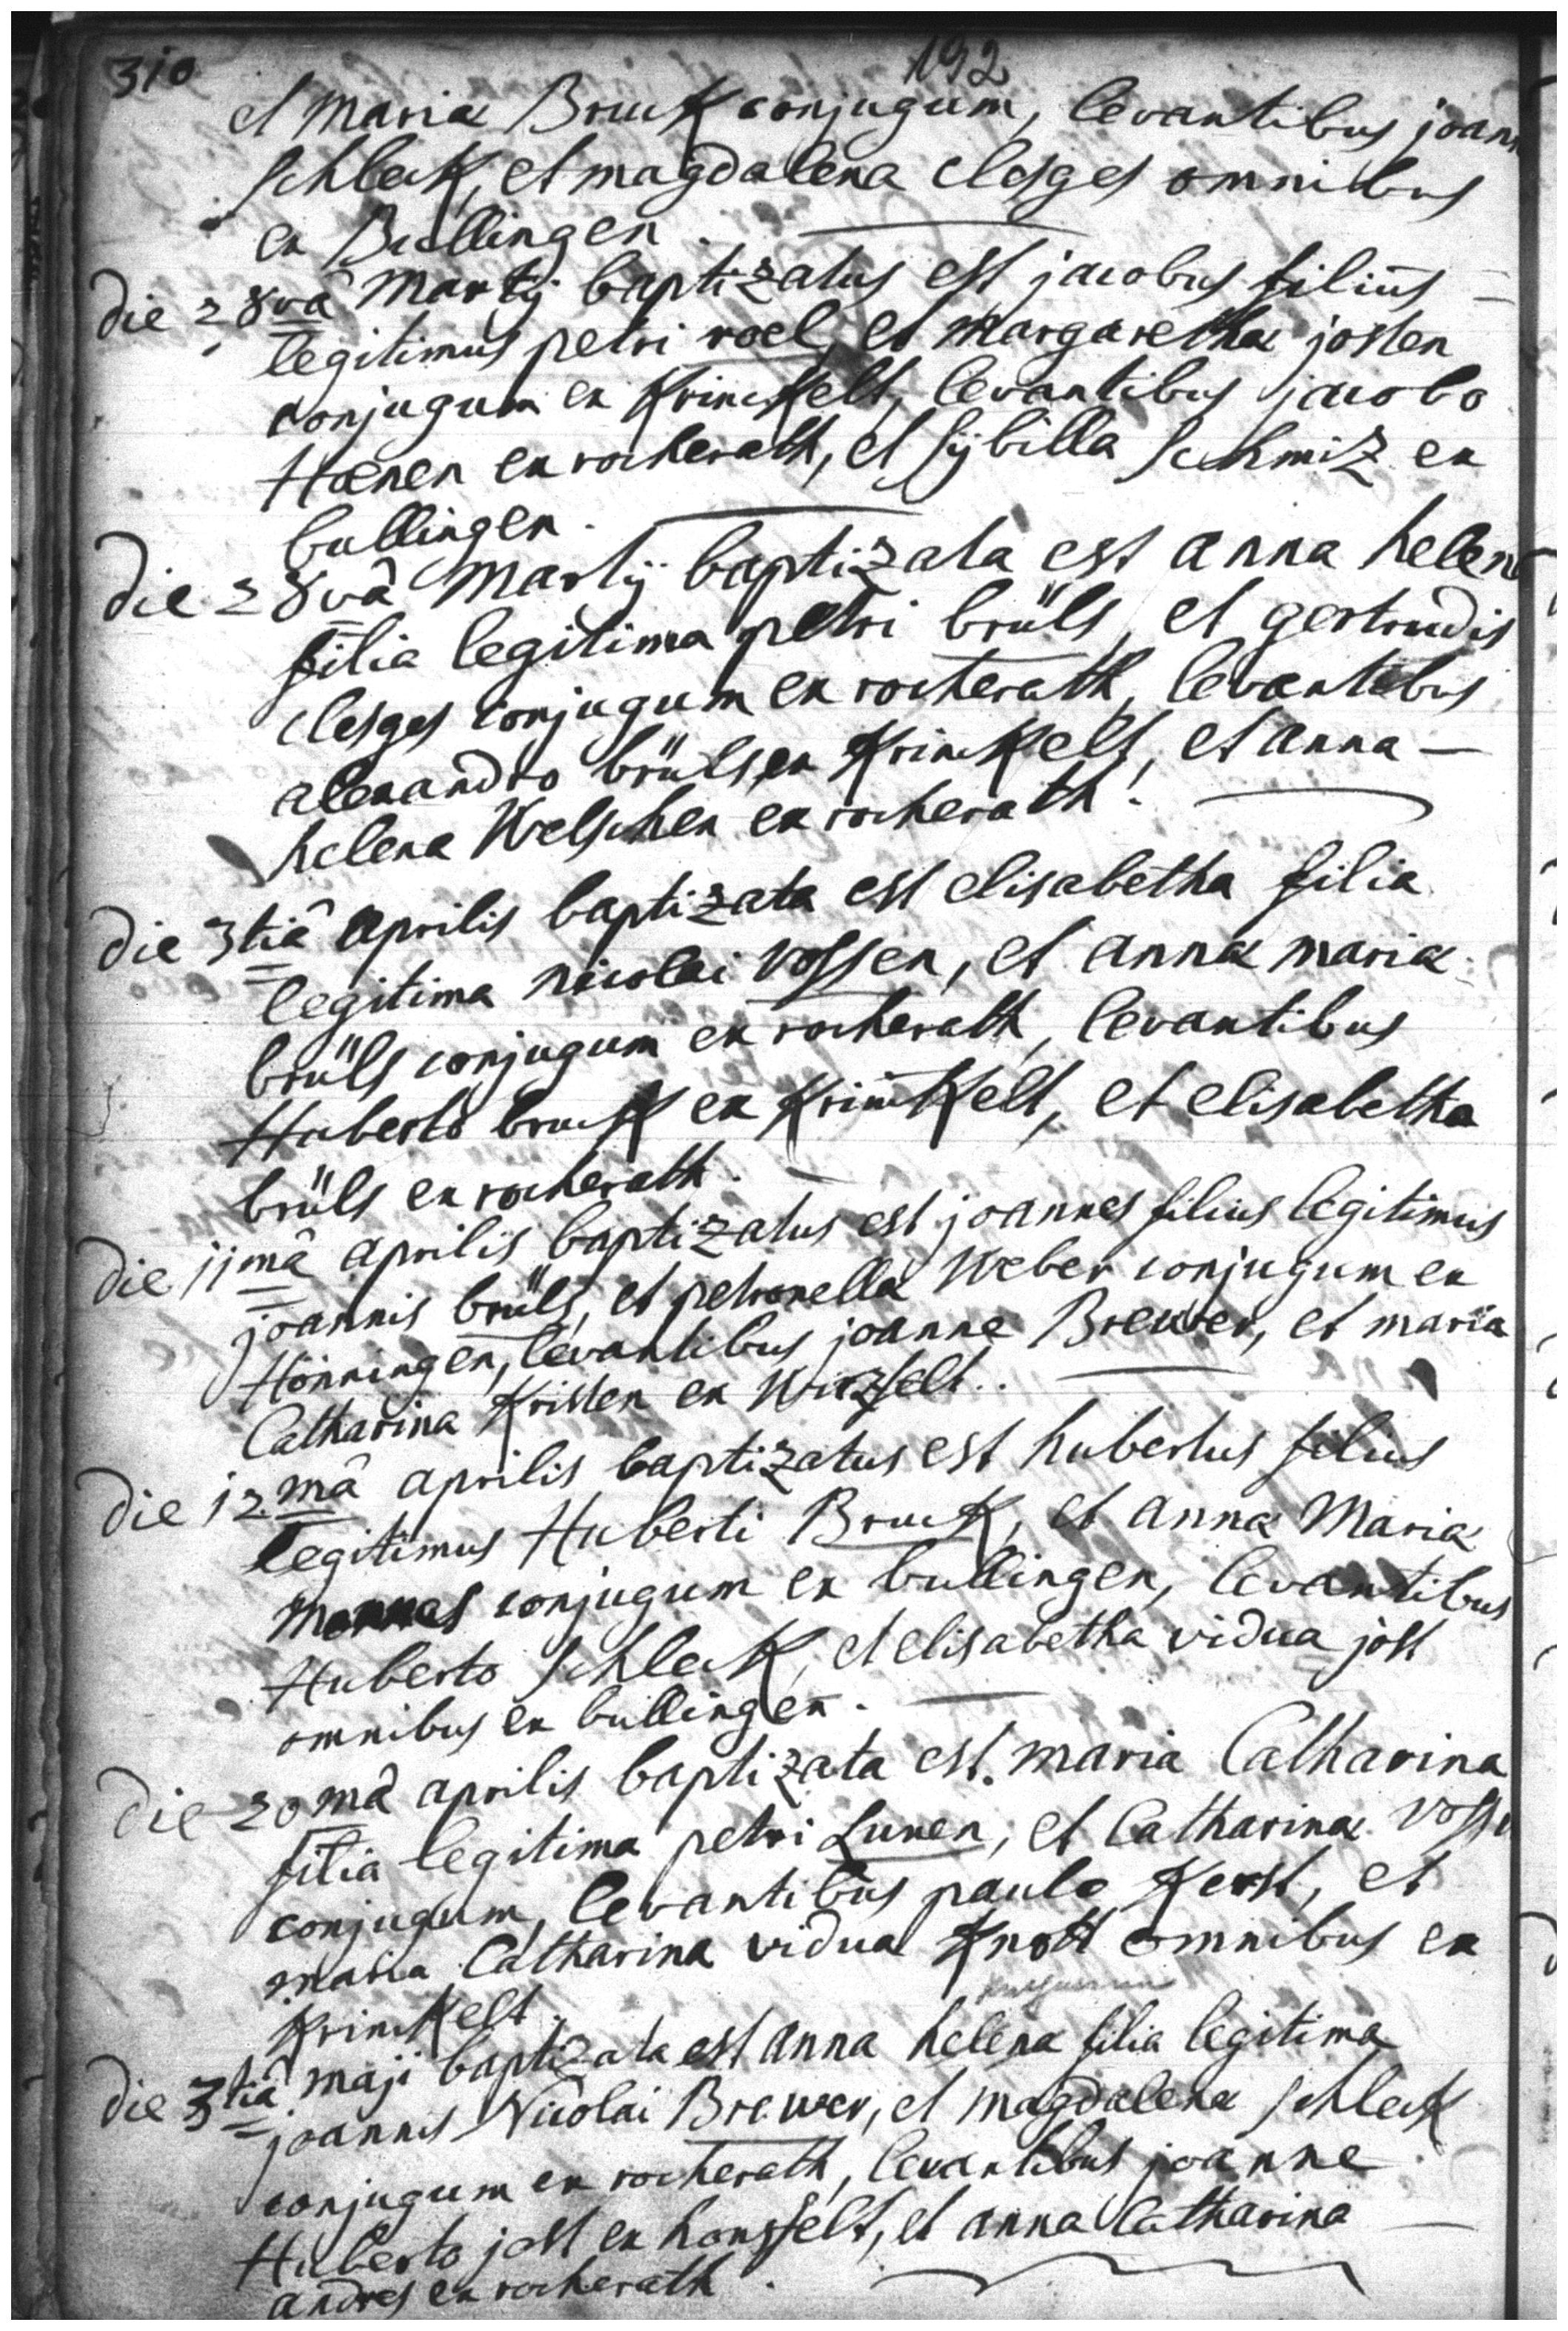 310
192
et Mariæ Bruck conjugum, levantibus joann
schleck, et magdalena clesges omnibus
ex Bullingen.
die 28vâ Martij baptizatus est jacobus filius
legitimus petri roel, et Margarethæ josten
conjugum ex Krinckelt, levantibus jacobo
Hænen ex rocherath, et sÿbilla schmiz ex
bullingen.
die 28vâ Martij baptizata est anna helena
filia legitima petri brüls, et gertrudis
clesges conjugum ex rocherath, levantibus
alexandro brüls ex Krinckelt, et anna —
helena Welschen ex rocherath.
die 3tiâ aprilis baptizata est elisabetha filia
legitima nicolai vossen, et annæ mariæ
brüls conjugum ex rocherath, levantibus
Huberto bruck ex Krinckelt, et elisabetha
brüls ex rocherath.
die 11mâ aprilis baptizatus est joannes filius legitimus
joannis brüls, et petronellæ Weber conjugum ex
Hönningen, levantibus joanne Brewer, et maria
Catharina Kristen ex Wirzfelt.
die 12mâ aprilis baptizatus est hubertus filius
legitimus Huberti Bruck, et annæ Mariæ
conjugum ex bullingen, levantibus
Huberto schleck, et elisabetha vidua jost
omnibus ex bullingen.
die 20mâ aprilis baptizata est maria Catharina
filia legitima petri Lunen, et Catharinæ voss
conjugum, levantibus paulo Kerst, et
maria Catharina vidua Knott omnibus ex
Krinckelt.
die 3tiâ maji baptizata est anna helena filia legitima
joannis Nicolai Brewer, et magdalenæ schleck
conjugum ex rocherath, levantibus joanne
Huberto jost ex honsfelt, et anna Catharina —
andres ex rocherath.